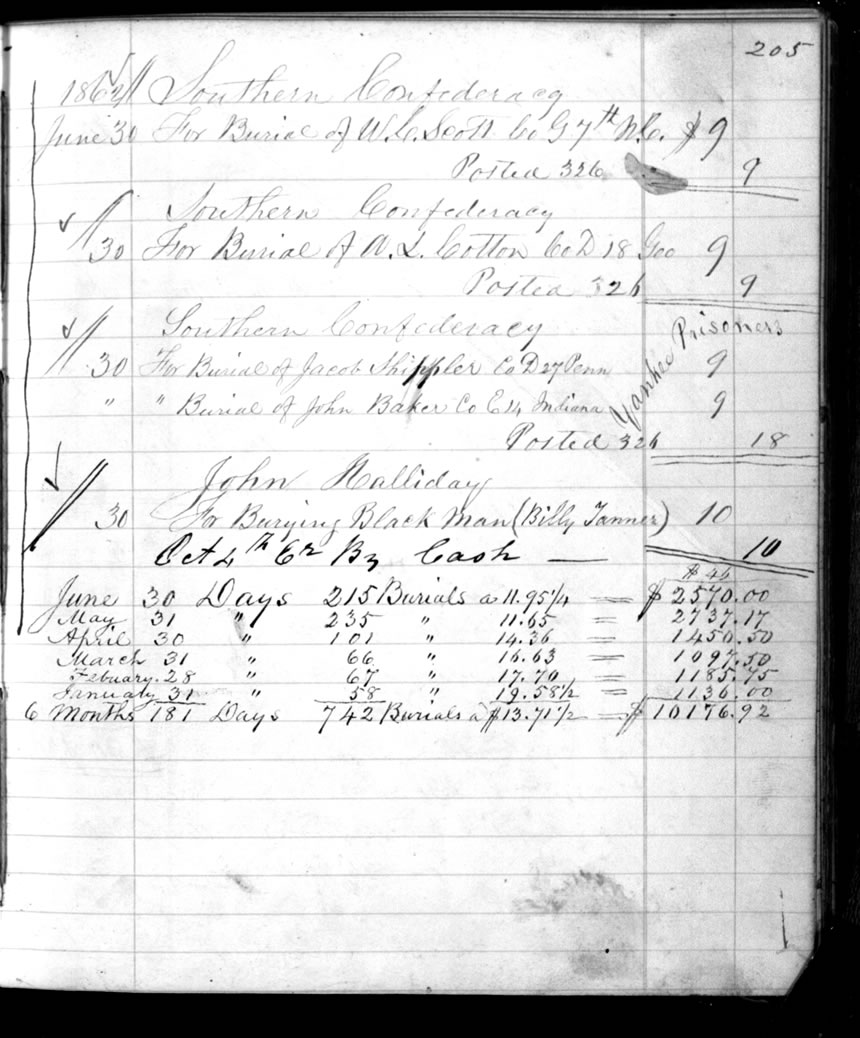 205
1862 Southern Confederacy
June 30 For Burial of W. C. Scott Co G 7th N.C. $ 9
Posted 326 9
Southern Confederacy
30 For Burial of A. L. Cotton Co D 18 Geo 9
Posted 326 9
Southern Confederacy
Yankee Prisoners
30 For Burial of Jacob Shippler Co D 27 Penn 9
" " Burial of John Baker Co E 14 Indiana 9
Posted 326 18
John Halliday
30 For Burying Black Man (Billy Tanner) 10
Oct 4th Cr By Cash — 10
$ 46
June 30 Days 215 Burials a 11.95 1/4 = $ 2570.00
May 31 " 235 " 11.65 = 2737.17
April 30 " 101 " 14.36 = 1450.50
March 31 " 66 " 16.63 = 1097.50
Febuary. 28 " 67 " 17.70 = 1185.75
January 31 " 58 " 19.58 1/2 = 1136.00
6 Months 181 Days 742 Burials a $13.71 1/2 = $ 10176.92